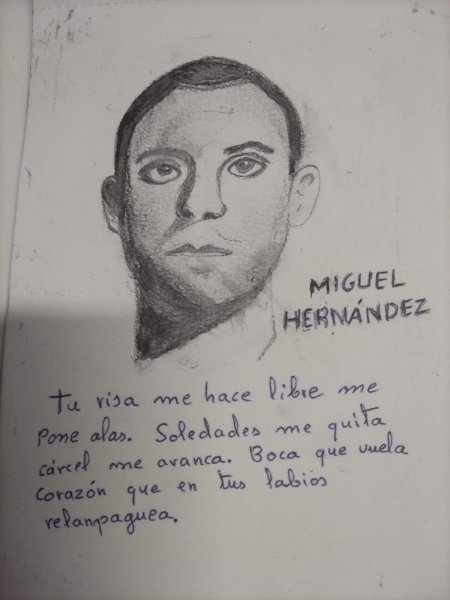 MIGUEL
HERNÁNDEZ
Tu risa me hace libre me
Pone alas. Soledades me quita
cárcel me avanca. Boca que vuela
corazón que en tus labios
relanpaguea.